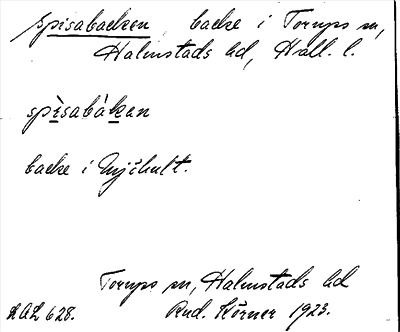 Spisabacken, backe i Torups sn,
Halmstads hd, Hall. l.
spìsabàkan
backe i Nyhult.
Torups sn, Halmstads hd
LAL 628. Rud. Körner 1923.